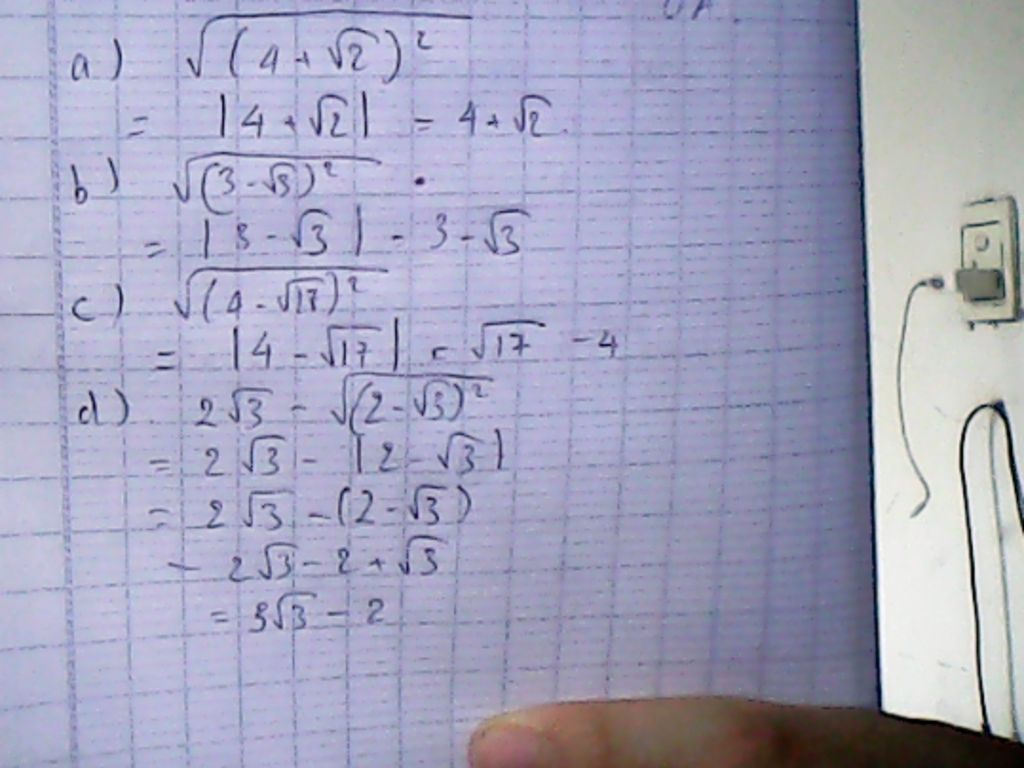 a) √(4+√2)²
= |4+√2| = 4+√2.
b) √(3-√3)²
= |3-√3| = 3-√3
c) √(4-√17)²
= |4-√17| = √17 -4
d) 2√3 - √(2-√3)²
= 2√3 - |2-√3|
= 2√3 -(2-√3)
= 2√3-2+√3
= 3√3-2